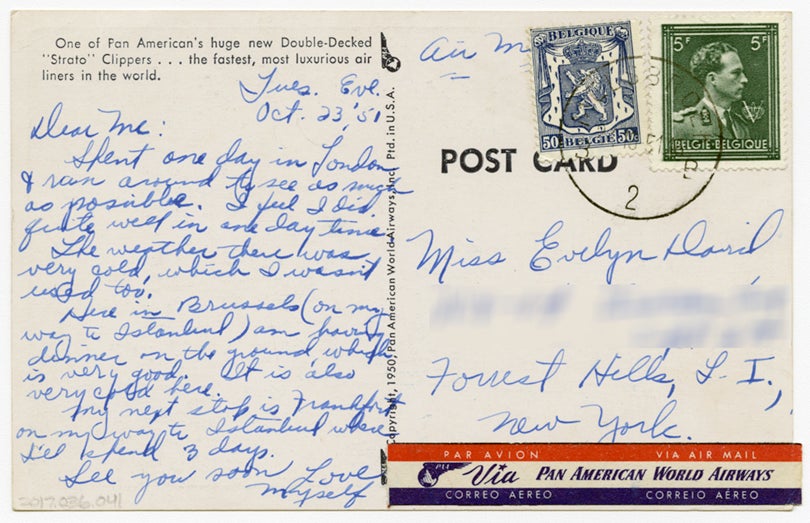 One of Pan American's huge new Double-Decked
"Strato" Clippers . . . the fastest, most luxurious air
liners in the world.
Tues. Eve.
Oct. 23, '51
Dear Me:
Spent one day in London
& ran around to see as much
as possible. I feel I did
quite well in one day time
The weather there was
very cold, which I wasn't
used too.
Here in Brussels (on my
way to Istanbul) am having
dinner on the ground, which
is very good. It is also
very cold here.
My next stop is Frankfurt
on my way to Istanbul where
I'll spend 3 days.
See you soon Love
Myself
2017.036.041
Copyright, 1950, Pan American World Airways, Inc. Ptd. in U.S.A.
Air
BELGIQUE
50 BELGIË 50c
5F 5F
BELGIE-BELGIQUE
2
POST CARD
Miss Evelyn David
Forrest Hills, L. I.,
New York.
PAR AVION VIA AIR MAIL
PAA Via PAN AMERICAN WORLD AIRWAYS
CORREO AÉREO CORREIO AÉREO